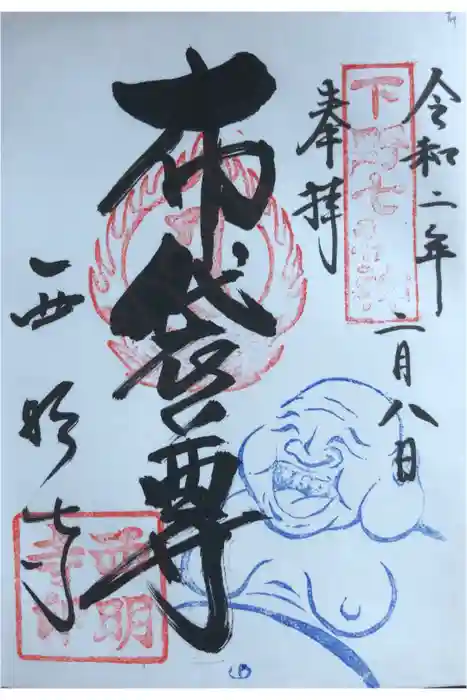 令和二年二月八日
奉拝
下野七福神
布袋尊
西明寺
西明
寺印